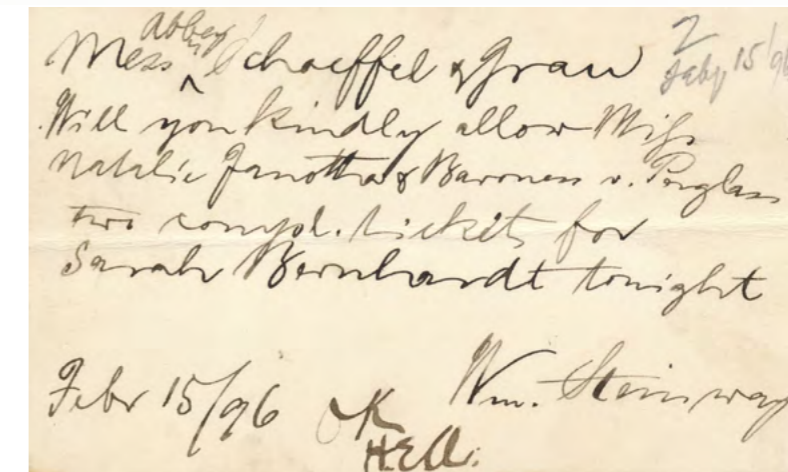 Abbey
Mess ^ Schoeffel & Grau
2
Feby 15/96
Will you kindly allow Miss
Natalie Janotha & Baroness v. Perglass
two compl. tickets for
Sarah Bernhardt tonight
Febr 15/96
Wm. Steinway
OK
H.E.A.